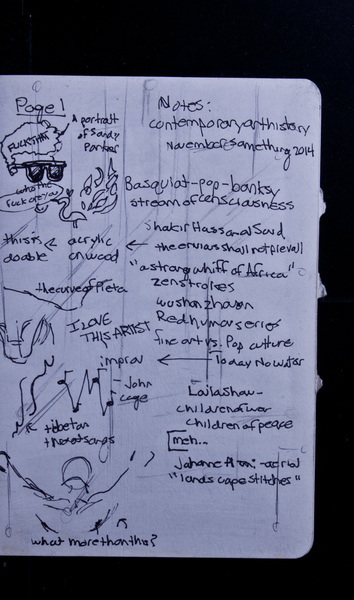 Page 1
Notes:
A portrait
of Sandy
Parker
FUCK SHIT
who the
fuck are you
contemporary art history
November something 2014
Basquiat-pop-banksy
stream of consciousness
Shakir Hassan Said
the envious shall not prevail
this is
doable
acrylic
on wood
"a strong whiff of Africa"
zen strokes
the curve of Pieta
wushanzhuan
Red humor series
I LOVE
THIS ARTIST
fine art vs. Pop culture
improv
Today No water
John
cage
Laila Shawa-
children of war
children of peace
tibetan
throat songs
meh...
aerial
"landscape stitches"
what more than this?